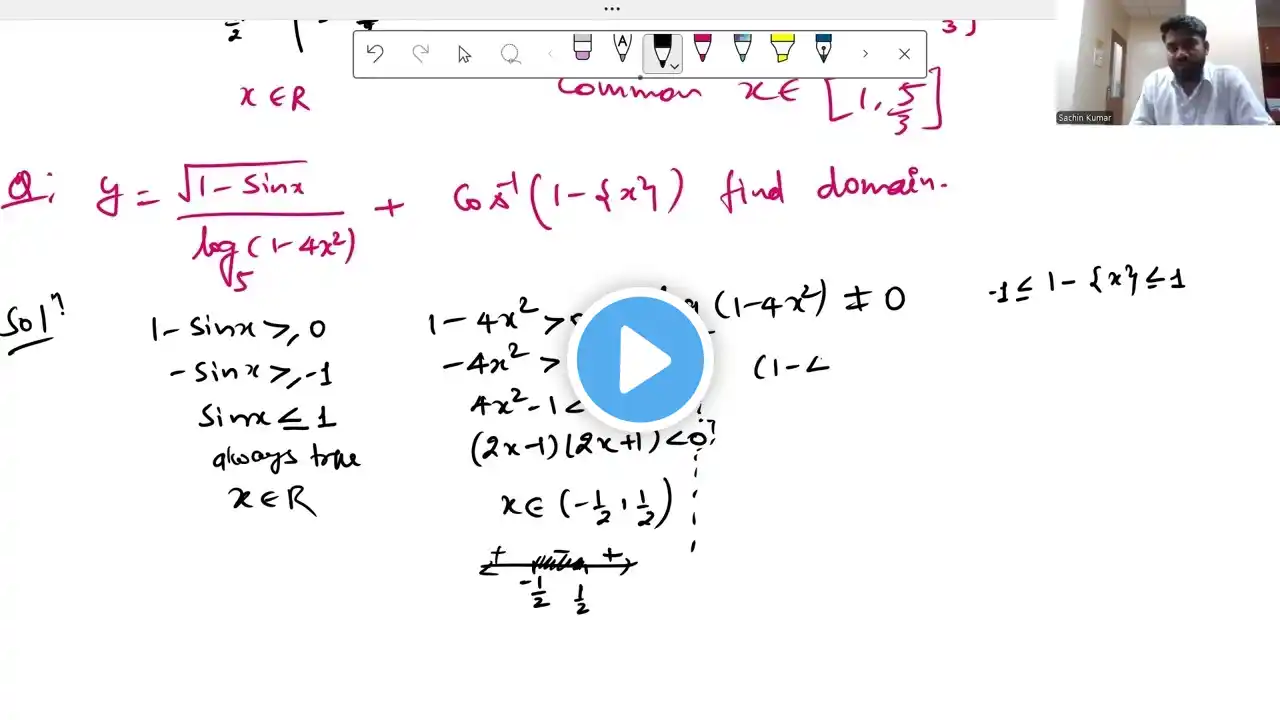 x ∈ R
common x ∈ [1, 5/3]
Sachin Kumar
Q: y = √(1 - sinx) / log₅(1 - 4x²) + Cos⁻¹(1 - {x}) find domain.
Solⁿ
1 - sinx ≥ 0
- sinx ≥ -1
sinx ≤ 1
always true
x ∈ R
1 - 4x² >
-4x² >
4x² - 1 <
(2x-1)(2x+1) < 0
x ∈ (-1/2, 1/2)
+ - +
-1/2 1/2
(1 - 4x²) ≠ 0
(1 -
-1 ≤ 1 - {x} ≤ 1